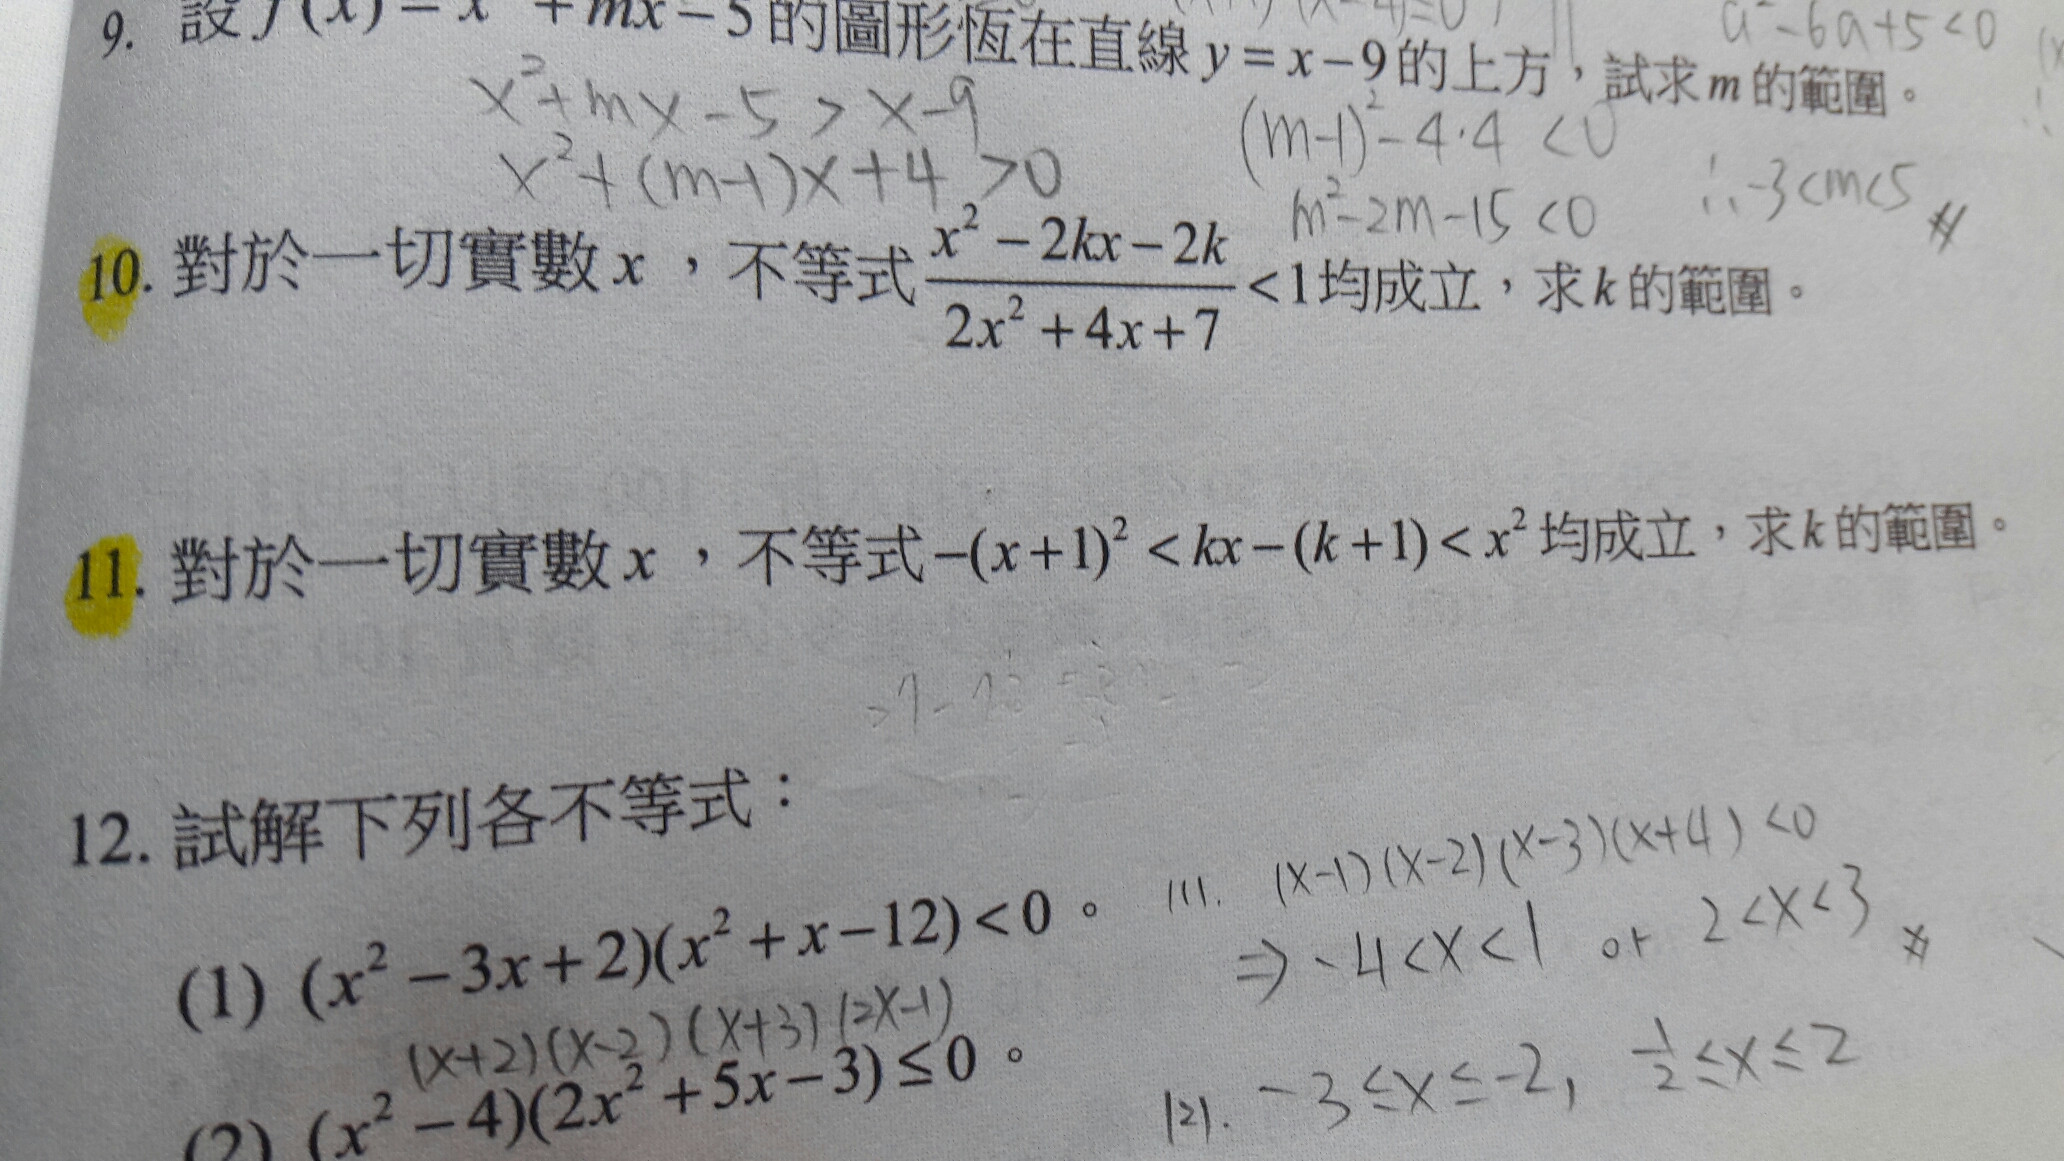 9. 設 f(x) = x² + mx − 5 的圖形恆在直線 y = x − 9 的上方，試求 m 的範圍。
a² − 6a + 5 < 0
x² + mx − 5 > x − 9
(m−1)² − 4·4 < 0
x² + (m−1)x + 4 > 0
m² − 2m − 15 < 0
∴ −3 < m < 5 #
10. 對於一切實數 x ，不等式 (x² − 2kx − 2k)/(2x² + 4x + 7) < 1 均成立，求 k 的範圍。
11. 對於一切實數 x ，不等式 −(x+1)² < kx − (k+1) < x² 均成立，求 k 的範圍。
12. 試解下列各不等式：
(1) (x² − 3x + 2)(x² + x − 12) < 0 。
(1). (x−1)(x−2)(x−3)(x+4) < 0
⇒ −4 < x < 1 or 2 < x < 3 #
(x+2)(x−2)(x+3)(2x−1)
(2) (x² − 4)(2x² + 5x − 3) ≤ 0 。
(2). −3 ≤ x ≤ −2, 1/2 ≤ x ≤ 2